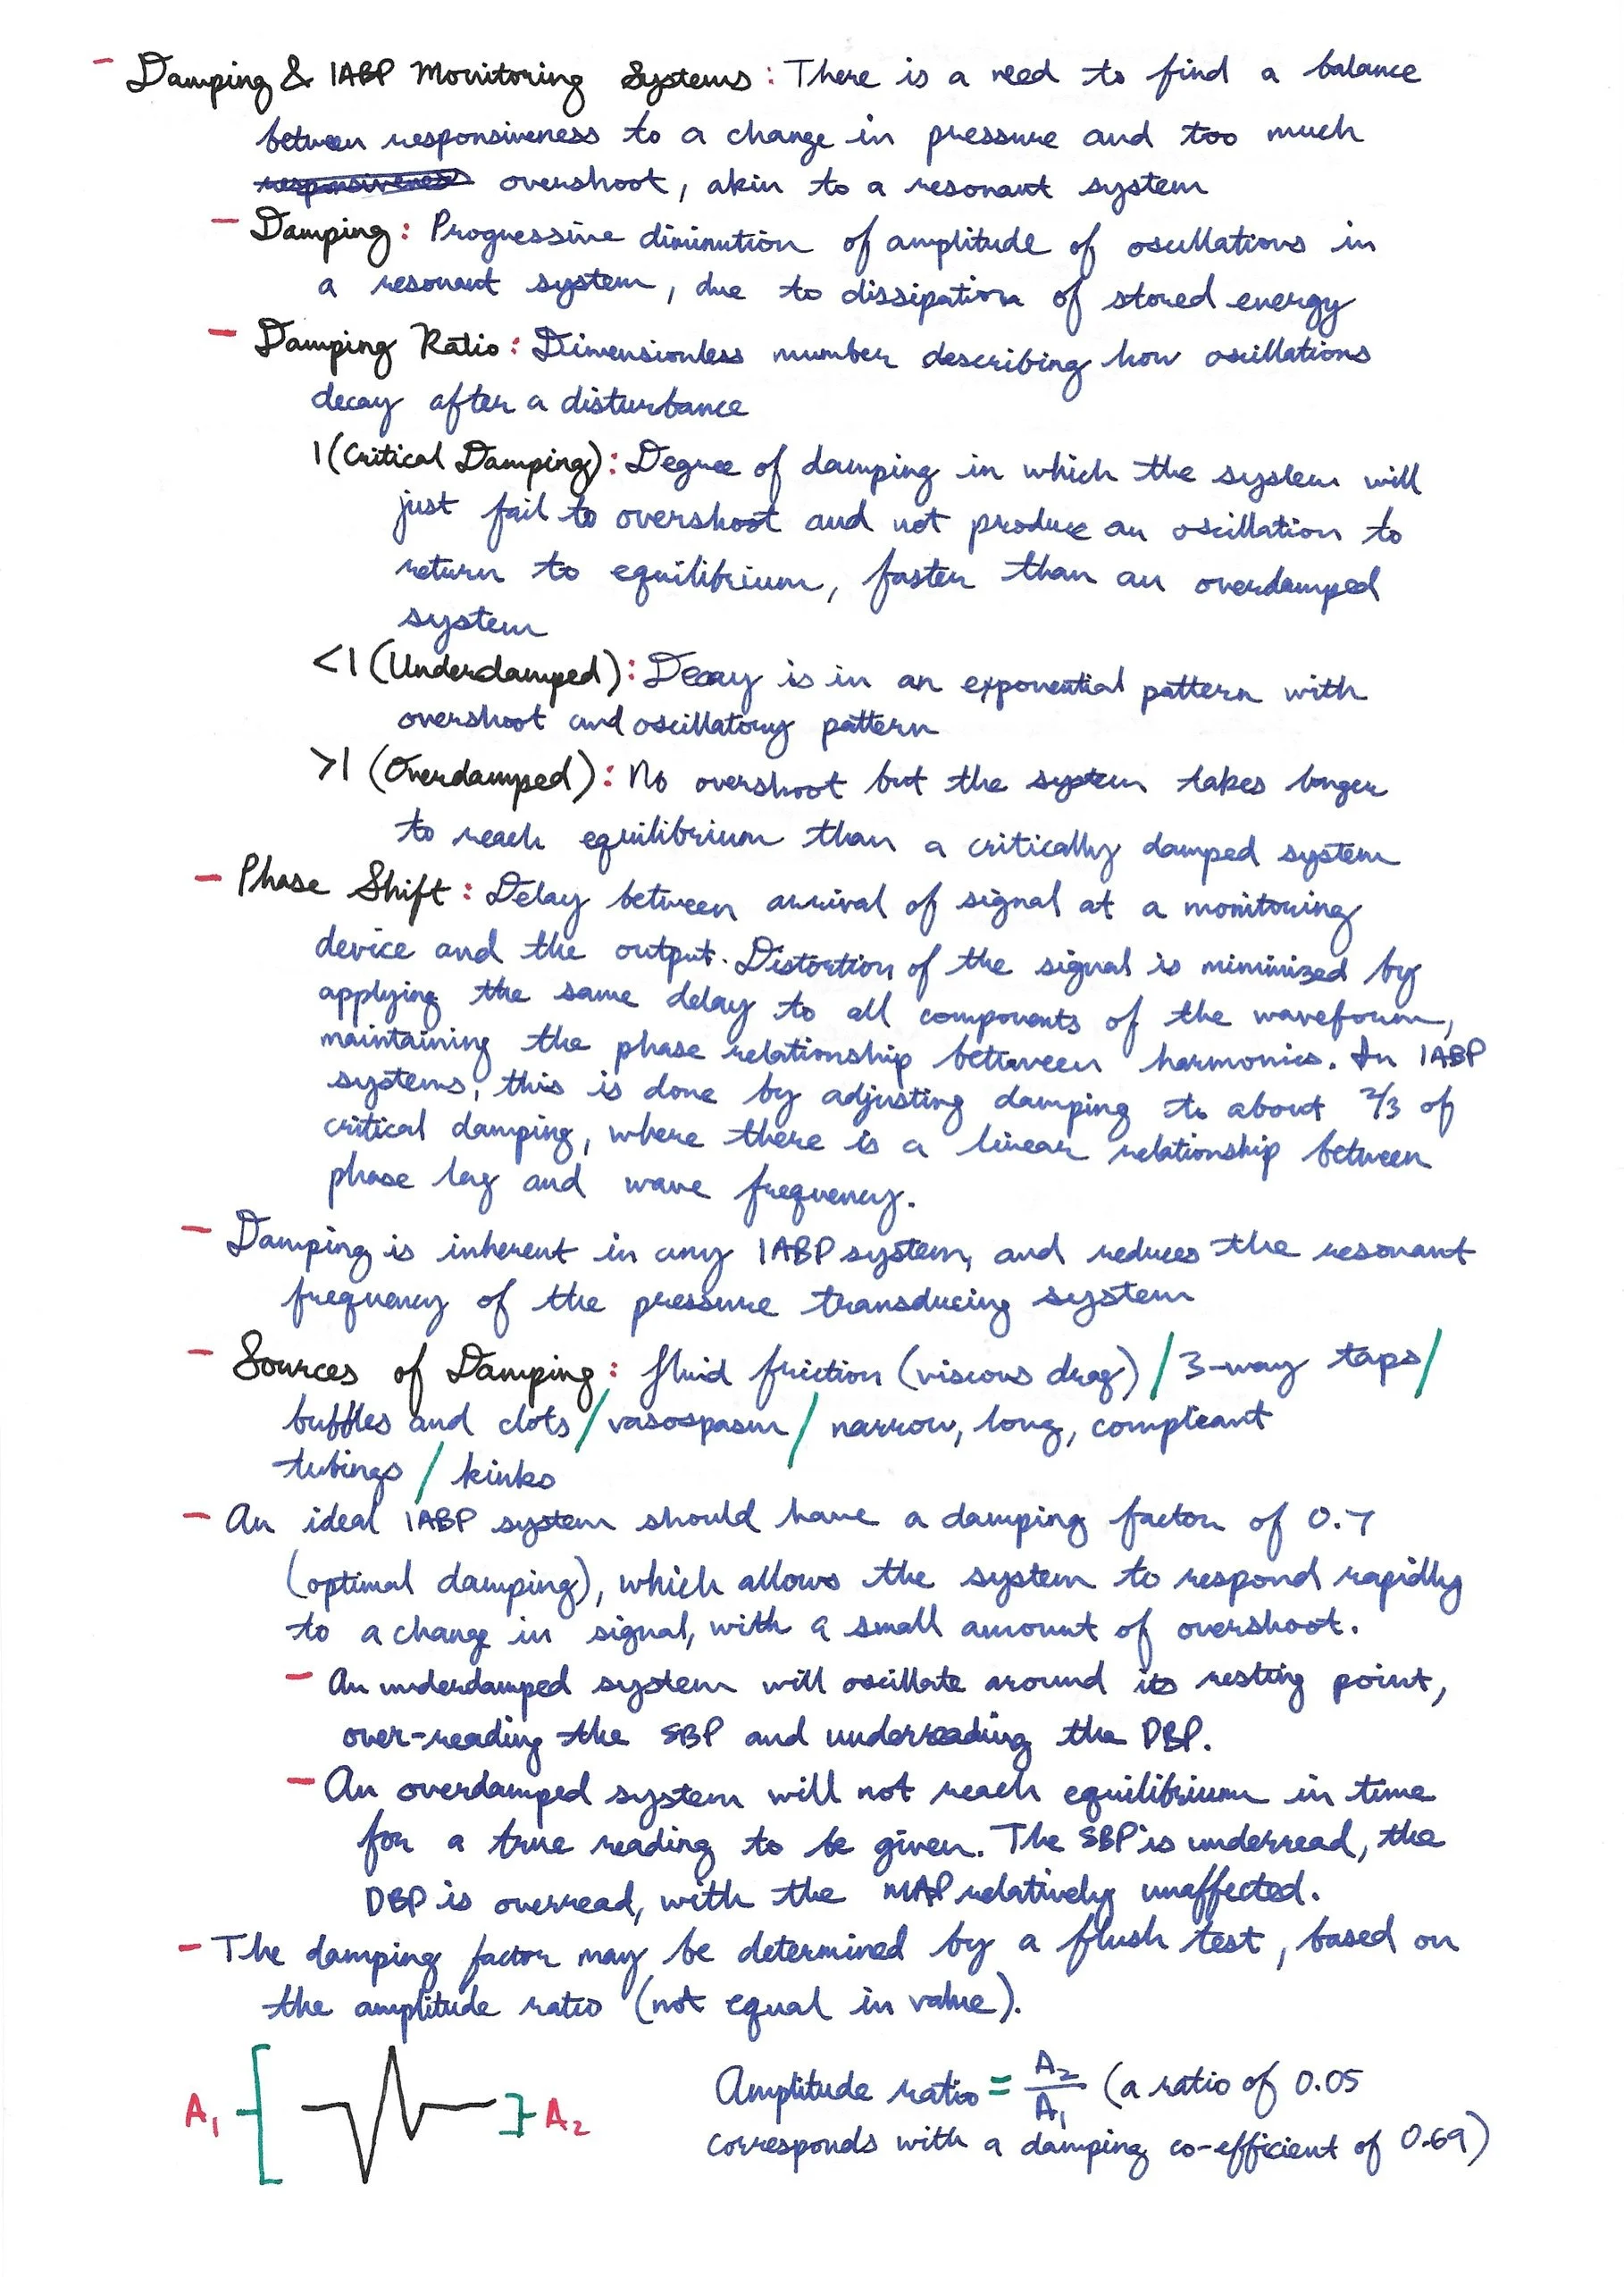 - Damping & IABP Monitoring Systems: There is a need to find a balance
between responsiveness to a change in pressure and too much
overshoot, akin to a resonant system
- Damping: Progressive diminution of amplitude of oscillations in
a resonant system, due to dissipation of stored energy
- Damping Ratio: Dimensionless number describing how oscillations
decay after a disturbance
1 (Critical Damping): Degree of damping in which the system will
just fail to overshoot and not produce an oscillation to
return to equilibrium, faster than an overdamped
system
<1 (Underdamped): Decay is in an exponential pattern with
overshoot and oscillatory pattern
>1 (Overdamped): No overshoot but the system takes longer
to reach equilibrium than a critically damped system
- Phase Shift: Delay between arrival of signal at a monitoring
device and the output. Distortion of the signal is minimized by
applying the same delay to all components of the waveform,
maintaining the phase relationship between harmonics. In IABP
systems, this is done by adjusting damping to about 2/3 of
critical damping, where there is a linear relationship between
phase lag and wave frequency.
- Damping is inherent in any IABP system, and reduces the resonant
frequency of the pressure transducing system
- Sources of Damping: fluid friction (viscous drag) / 3-way taps /
bubbles and clots / vasospasm / narrow, long, compliant
tubings / kinks
- An ideal IABP system should have a damping factor of 0.7
(optimal damping), which allows the system to respond rapidly
to a change in signal, with a small amount of overshoot.
- An underdamped system will oscillate around its resting point,
over-reading the SBP and underreading the DBP.
- An overdamped system will not reach equilibrium in time
for a true reading to be given. The SBP is underread, the
DBP is overread, with the MAP relatively unaffected.
- The damping factor may be determined by a flush test, based on
the amplitude ratio (not equal in value).
A1 A2
Amplitude ratio = A2/A1 (a ratio of 0.05
corresponds with a damping co-efficient of 0.69)